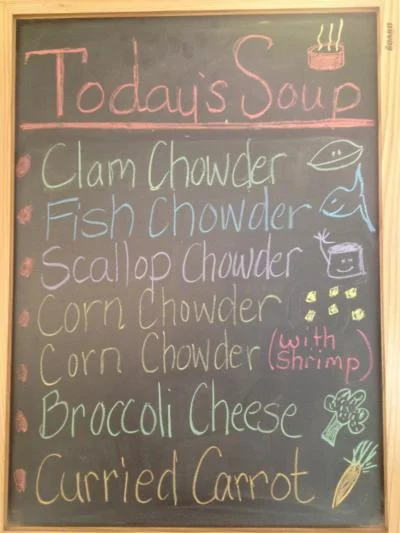 Today's Soup
Clam Chowder
Fish Chowder
Scallop Chowder
Corn Chowder
Corn Chowder (with shrimp)
Broccoli Cheese
Curried Carrot